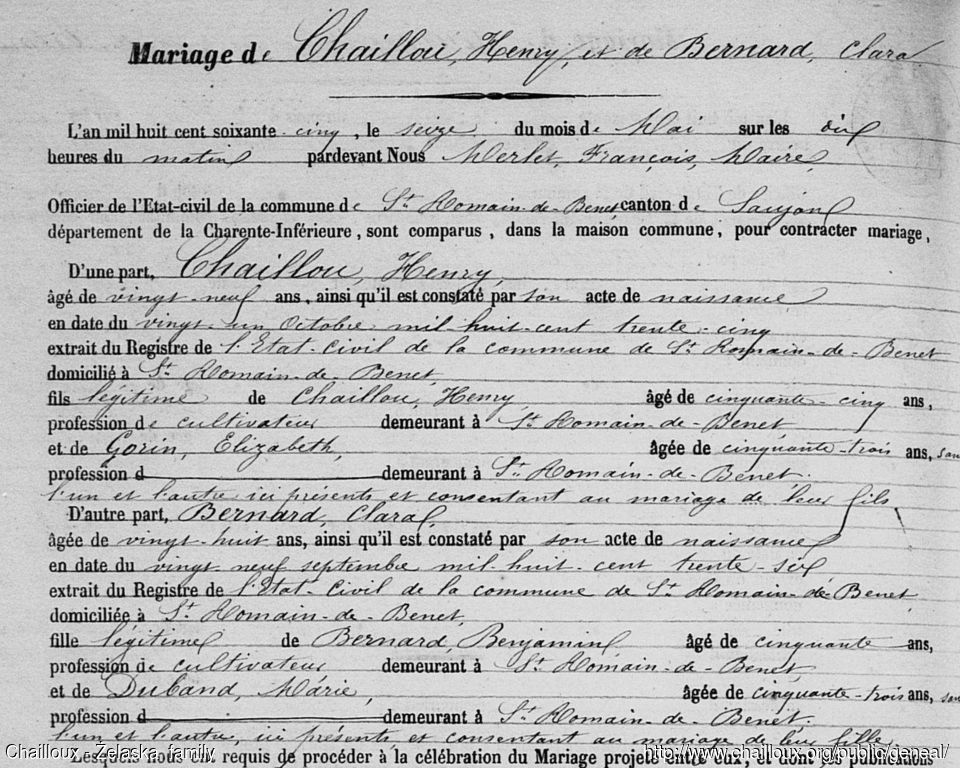 Mariage de Chaillou, Henry, et de Bernard, Clara.
L'an mil huit cent soixante cinq, le seize du mois de Mai sur les dix
heures du matin pardevant Nous Merlet, François, Maire,
Officier de l'Etat-civil de la commune de St Romain-de-Benet canton de Saujon
département de la Charente-Inférieure, sont comparus, dans la maison commune, pour contracter mariage,
D'une part, Chaillou, Henry,
âgé de vingt-neuf ans, ainsi qu'il est constaté par son acte de naissance
en date du vingt-un Octobre mil-huit-cent trente-cinq
extrait du Registre de l'Etat-Civil de la commune de St Romain-de-Benet
domicilié à St Romain-de-Benet,
fils légitime de Chaillou, Henry, âgé de cinquante-cinq ans,
profession de cultivateur demeurant à St Romain-de-Benet
et de Gorin, Elizabeth, âgée de cinquante-trois ans, san
profession d demeurant à St Romain-de-Benet.
l'un et l'autre ici présents et consentant au mariage de leur fils
D'autre part, Bernard, Clara,
âgée de vingt-huit ans, ainsi qu'il est constaté par son acte de naissance
en date du vingt-neuf septembre mil-huit-cent trente-six
extrait du Registre de l'Etat-Civil de la commune de St Romain-de-Benet,
domiciliée à St Romain-de-Benet,
fille légitime de Bernard, Benjamin âgé de cinquante ans,
profession de cultivateur demeurant à St Romain-de-Benet,
et de Duband, Marie, âgée de cinquante-trois ans, san
profession d demeurant à St Romain-de-Benet.
l'un et l'autre, ici présents et consentant au mariage de leur fille
Lesquels nous ont requis de procéder à la célébration du Mariage projeté entre eux, et dont les publications
Chailloux - Zelaska family
http://www.chailloux.org/public/geneal/